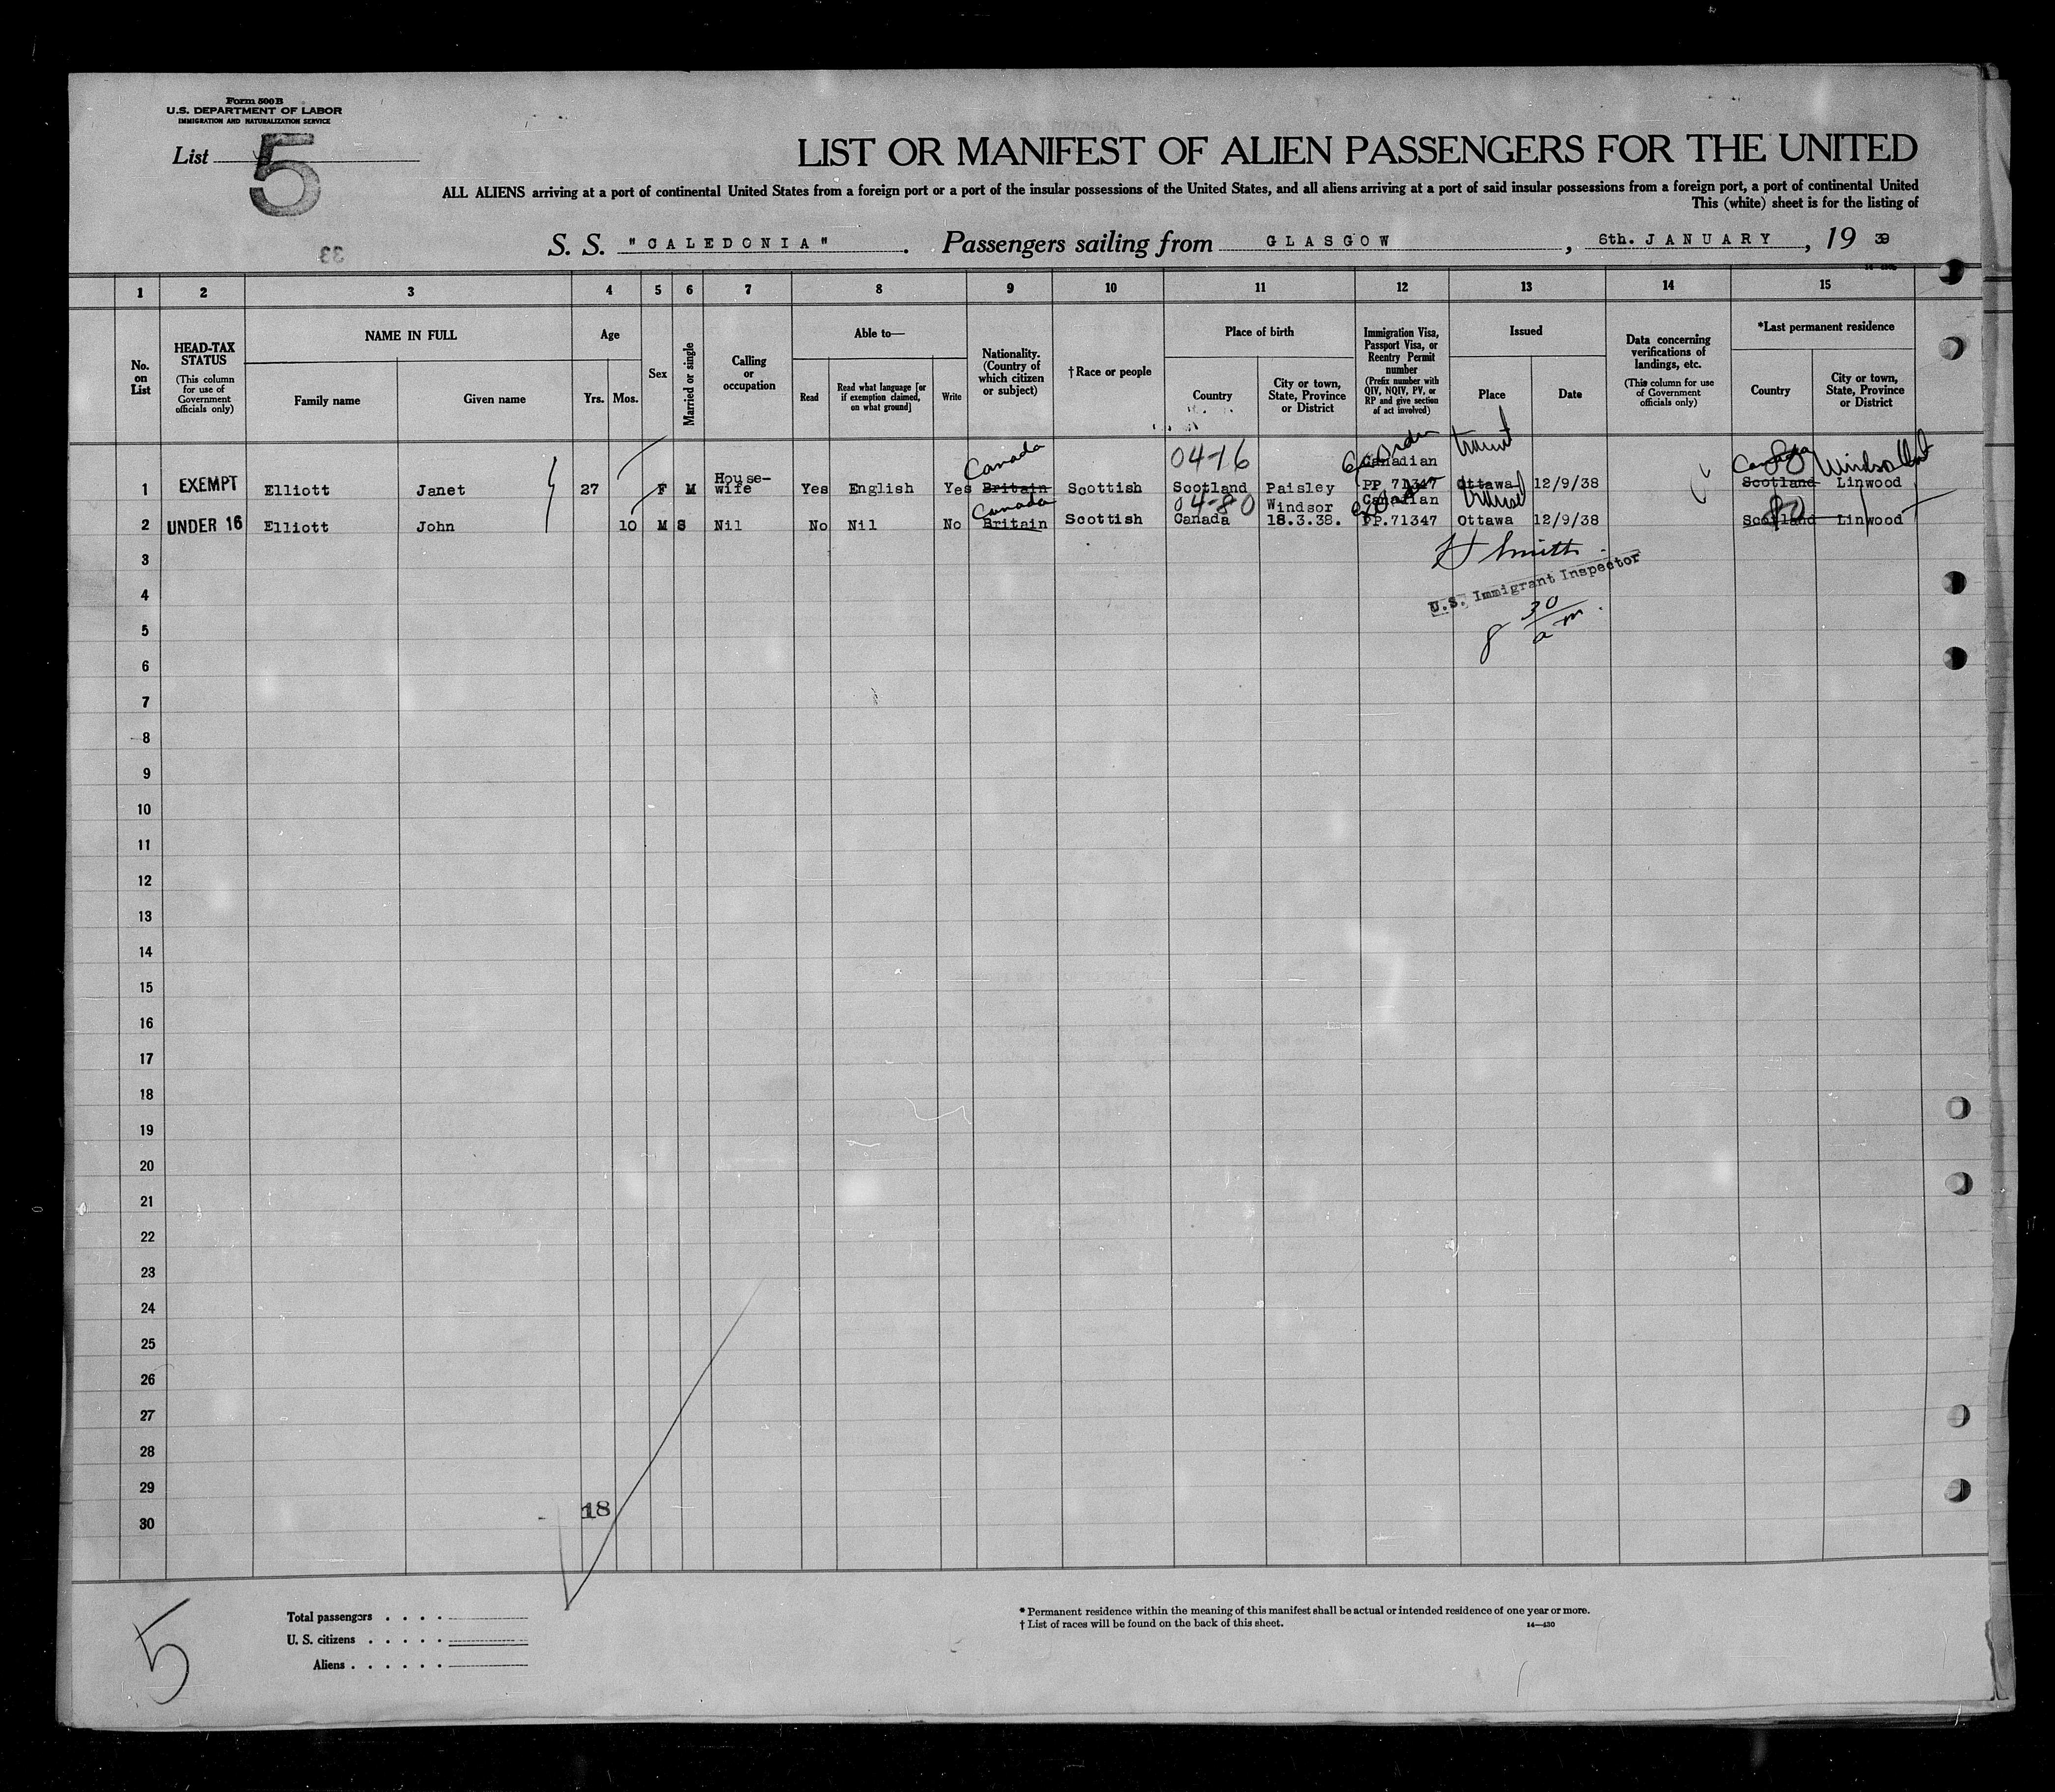 Form 500B
U.S. DEPARTMENT OF LABOR
IMMIGRATION AND NATURALIZATION SERVICE
List 5
LIST OR MANIFEST OF ALIEN PASSENGERS FOR THE UNITED
ALL ALIENS arriving at a port of continental United States from a foreign port or a port of the insular possessions of the United States, and all aliens arriving at a port of said insular possessions from a foreign port, a port of continental United
This (white) sheet is for the listing of
33
S. S. "CALEDONIA". Passengers sailing from GLASGOW, 6th. JANUARY, 19 39
1 2 3 4 5 6 7 8 9 10 11 12 13 14 15
No. on List
HEAD-TAX STATUS (This column for use of Government officials only)
NAME IN FULL
Family name Given name
Age
Yrs. Mos.
Sex
Married or single
Calling or occupation
Able to—
Read
Read what language [or if exemption claimed, on what ground]
Write
Nationality. (Country of which citizen or subject)
†Race or people
Place of birth
Country
City or town, State, Province or District
Immigration Visa, Passport Visa, or Reentry Permit number (Prefix number with QIV, NQIV, PV, or RP and give section of act involved)
Issued
Place Date
Data concerning verifications of landings, etc. (This column for use of Government officials only)
*Last permanent residence
Country
City or town, State, Province or District
Canada 04-16 Canadian transit Canada Windsor Ont
1 EXEMPT Elliott Janet 27 F M House-wife Yes English Yes Britain Scottish Scotland Paisley PP 71347 Ottawa 12/9/38 Scotland Linwood
Canada 04-80 Windsor Canadian transit 80
2 UNDER 16 Elliott John 10 M S Nil No Nil No Britain Scottish Canada 18.3.38. PP.71347 Ottawa 12/9/38 Scotland Linwood
3
H Smith
U.S. Immigrant Inspector
4
8 30 am
5
6
7
8
9
10
11
12
13
14
15
16
17
18
19
20
21
22
23
24
25
26
27
28
29
18
30
5
Total passengers
U. S. citizens
Aliens
* Permanent residence within the meaning of this manifest shall be actual or intended residence of one year or more.
† List of races will be found on the back of this sheet.
14—430